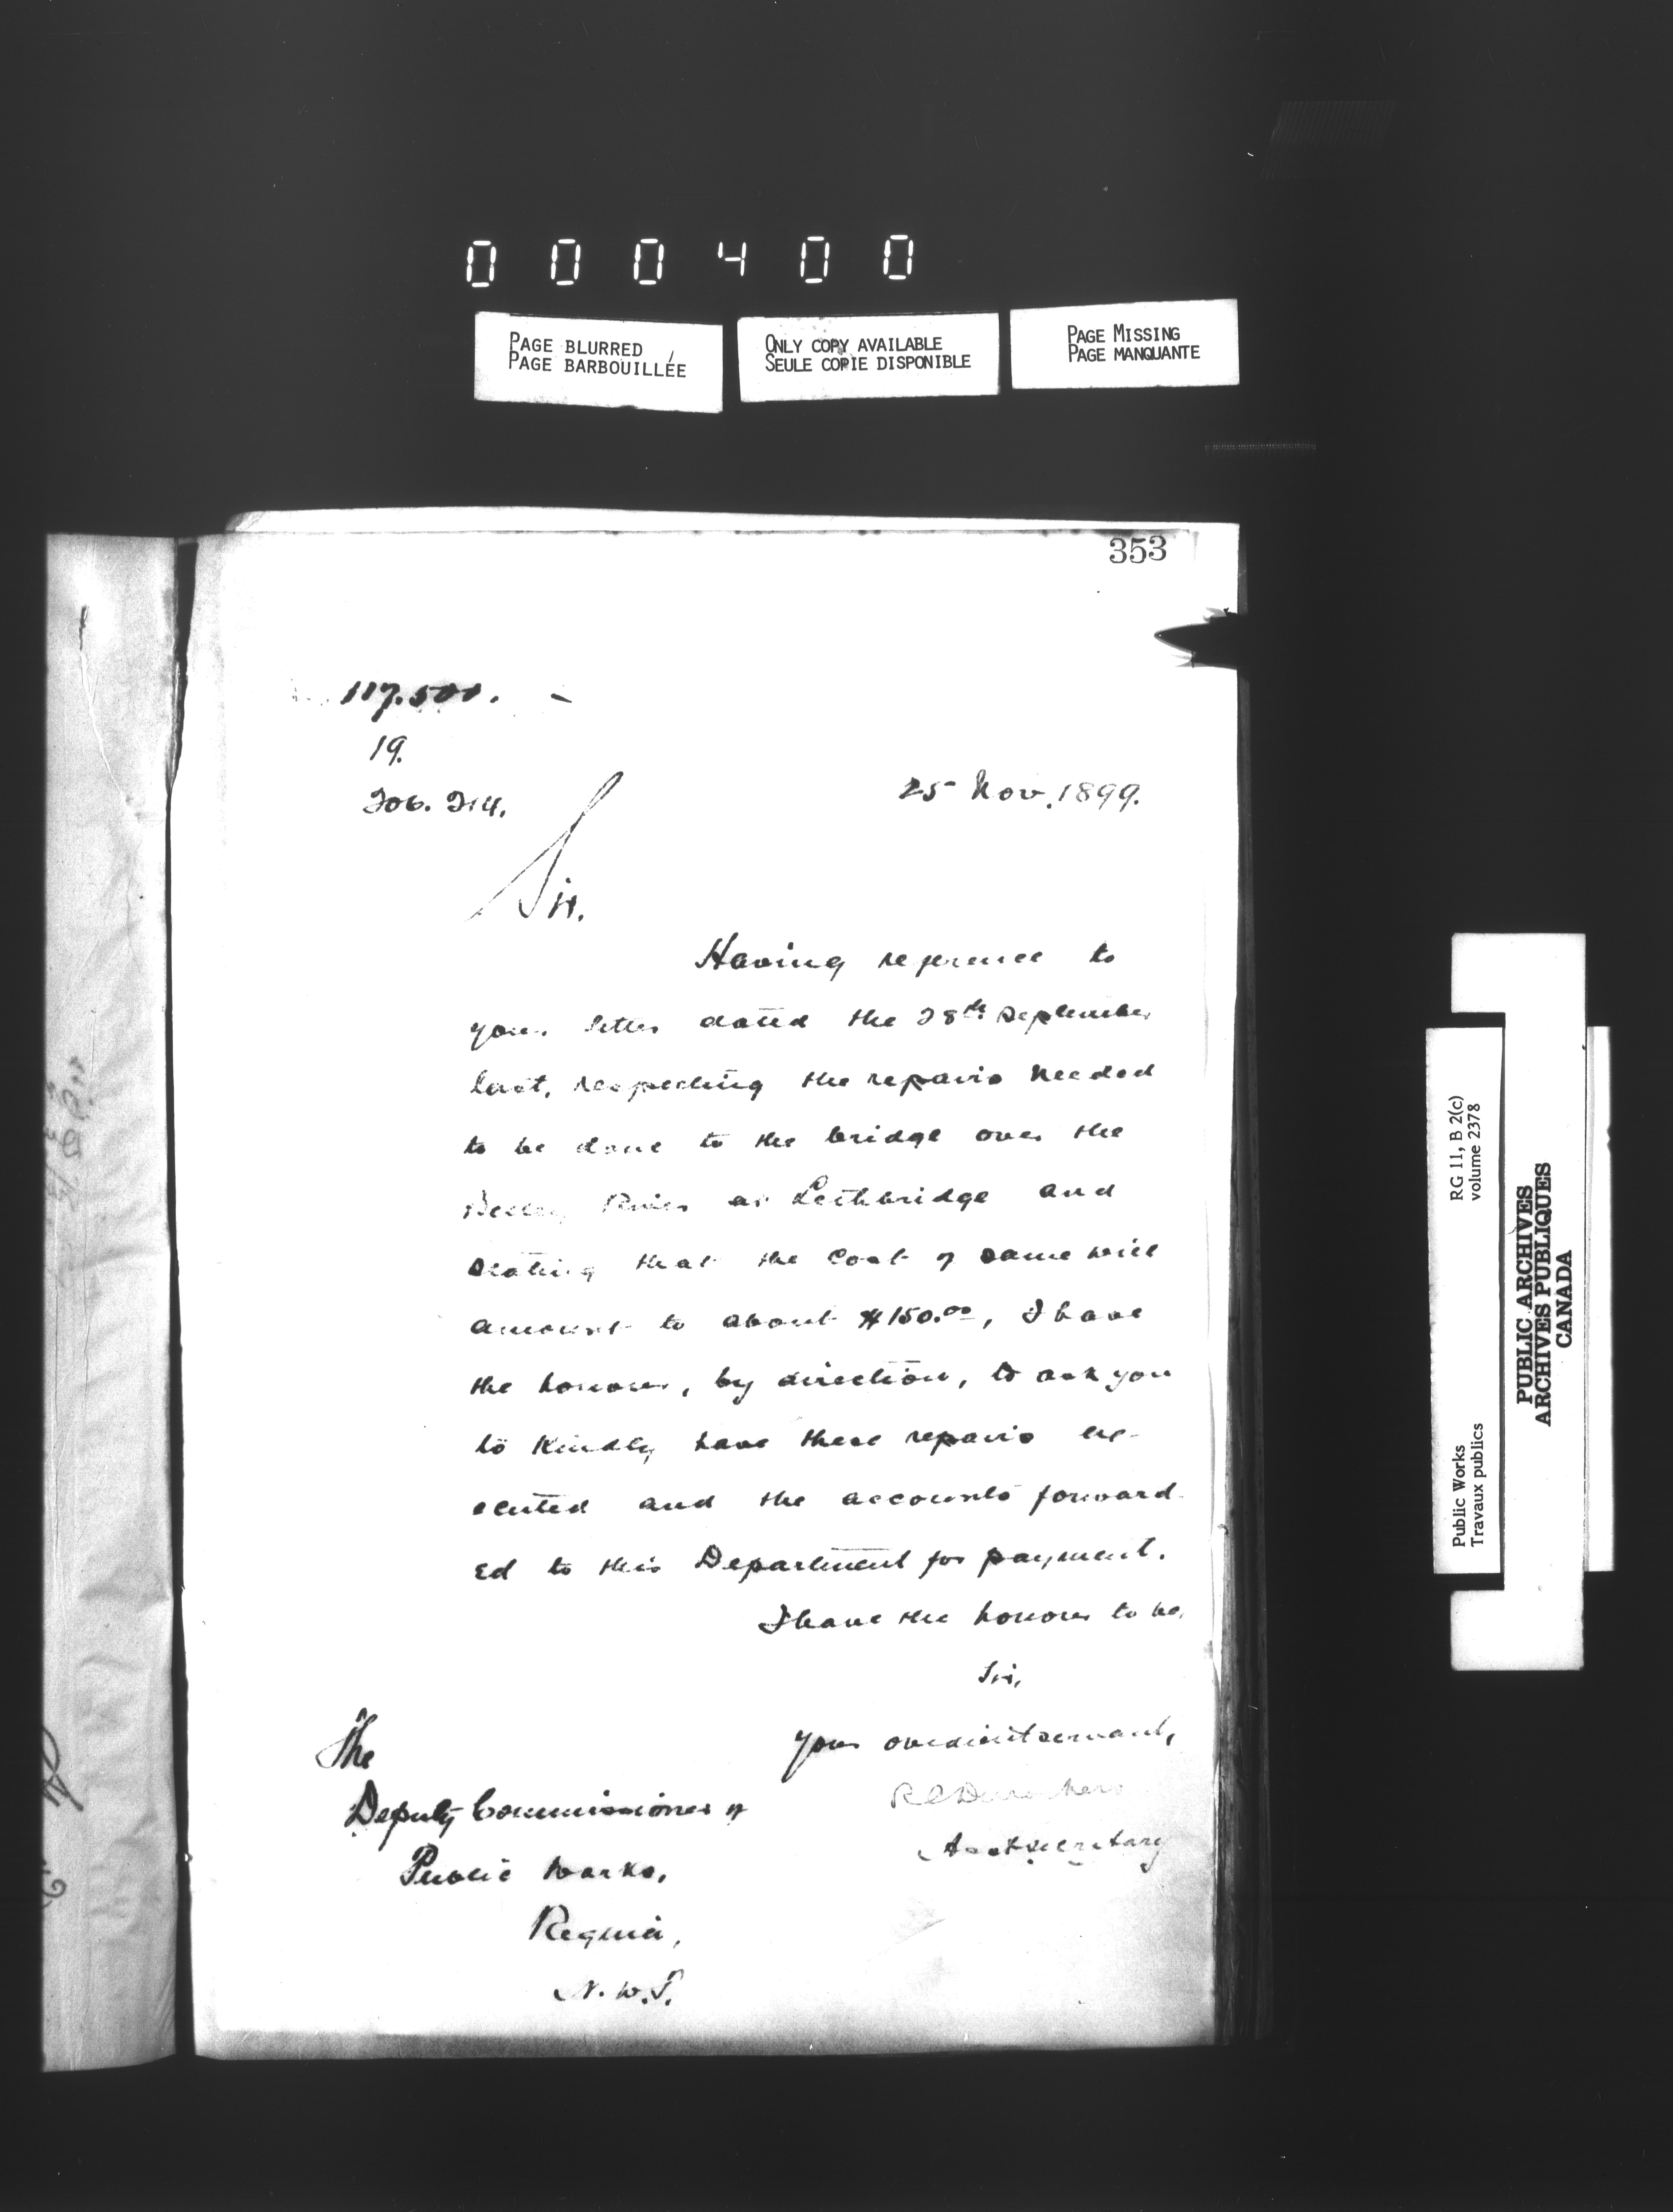 000400
PAGE BLURRED
PAGE BARBOUILLÉE
ONLY COPY AVAILABLE
SEULE COPIE DISPONIBLE
PAGE MISSING
PAGE MANQUANTE
353
117.500. -
19.
206.214.
25 Nov. 1899.
Sir.
Having reference to
your letter dated the 28th September
last, respecting the repairs needed
to be done to the bridge over the
Belly River at Lethbridge and
stating that the cost of same will
amount to about $150.00, I have
the honour, by direction, to ask you
to kindly have these repairs ex-
ecuted and the accounts forward-
ed to this Department for payment.
I have the honour to be,
Sir,
Your obedient servant,
Asst Secretary
The
Deputy Commissioner of
Public Works,
Regina,
N.W.T.
Public Works
Travaux publics
RG 11, B 2(c)
volume 2378
PUBLIC ARCHIVES
ARCHIVES PUBLIQUES
CANADA